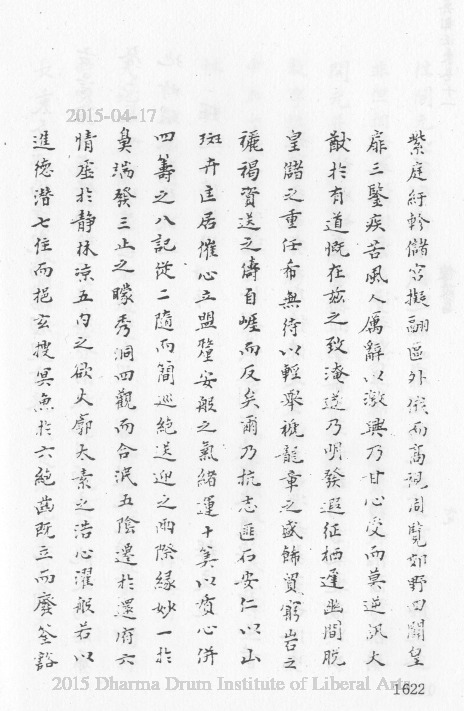 2015-04-17
紫庭紆軫儲宮擬翮區外俄而高視周覽郊野四闢皇
扉三鑒疾苦風人厲辭以激興乃甘心受而莫逆訊大
猷於有道慨在茲之致淹遂乃明發遐征栖遲幽閒脫
皇儲之重任希無待以輕舉褫龍章之盛飾貿窮岩之
襤褐資送之儔自崖而反矣爾乃抗志匪石安仁以山
斑卉匡居摧心立盟釐安般之氣緒運十筭以質心併
四籌之八記從二隨而簡巡絕送迎之兩際緣妙一於
鼻端發三止之矇秀洞四觀而合泯五陰遷於還府六
情虛於靜林凉五內之欲火廓大素之浩心濯般若以
進德潛七住而挹玄搜冥魚於六絕齒既立而廢筌豁
2015 Dharma Drum Institute of Liberal Arts
1622